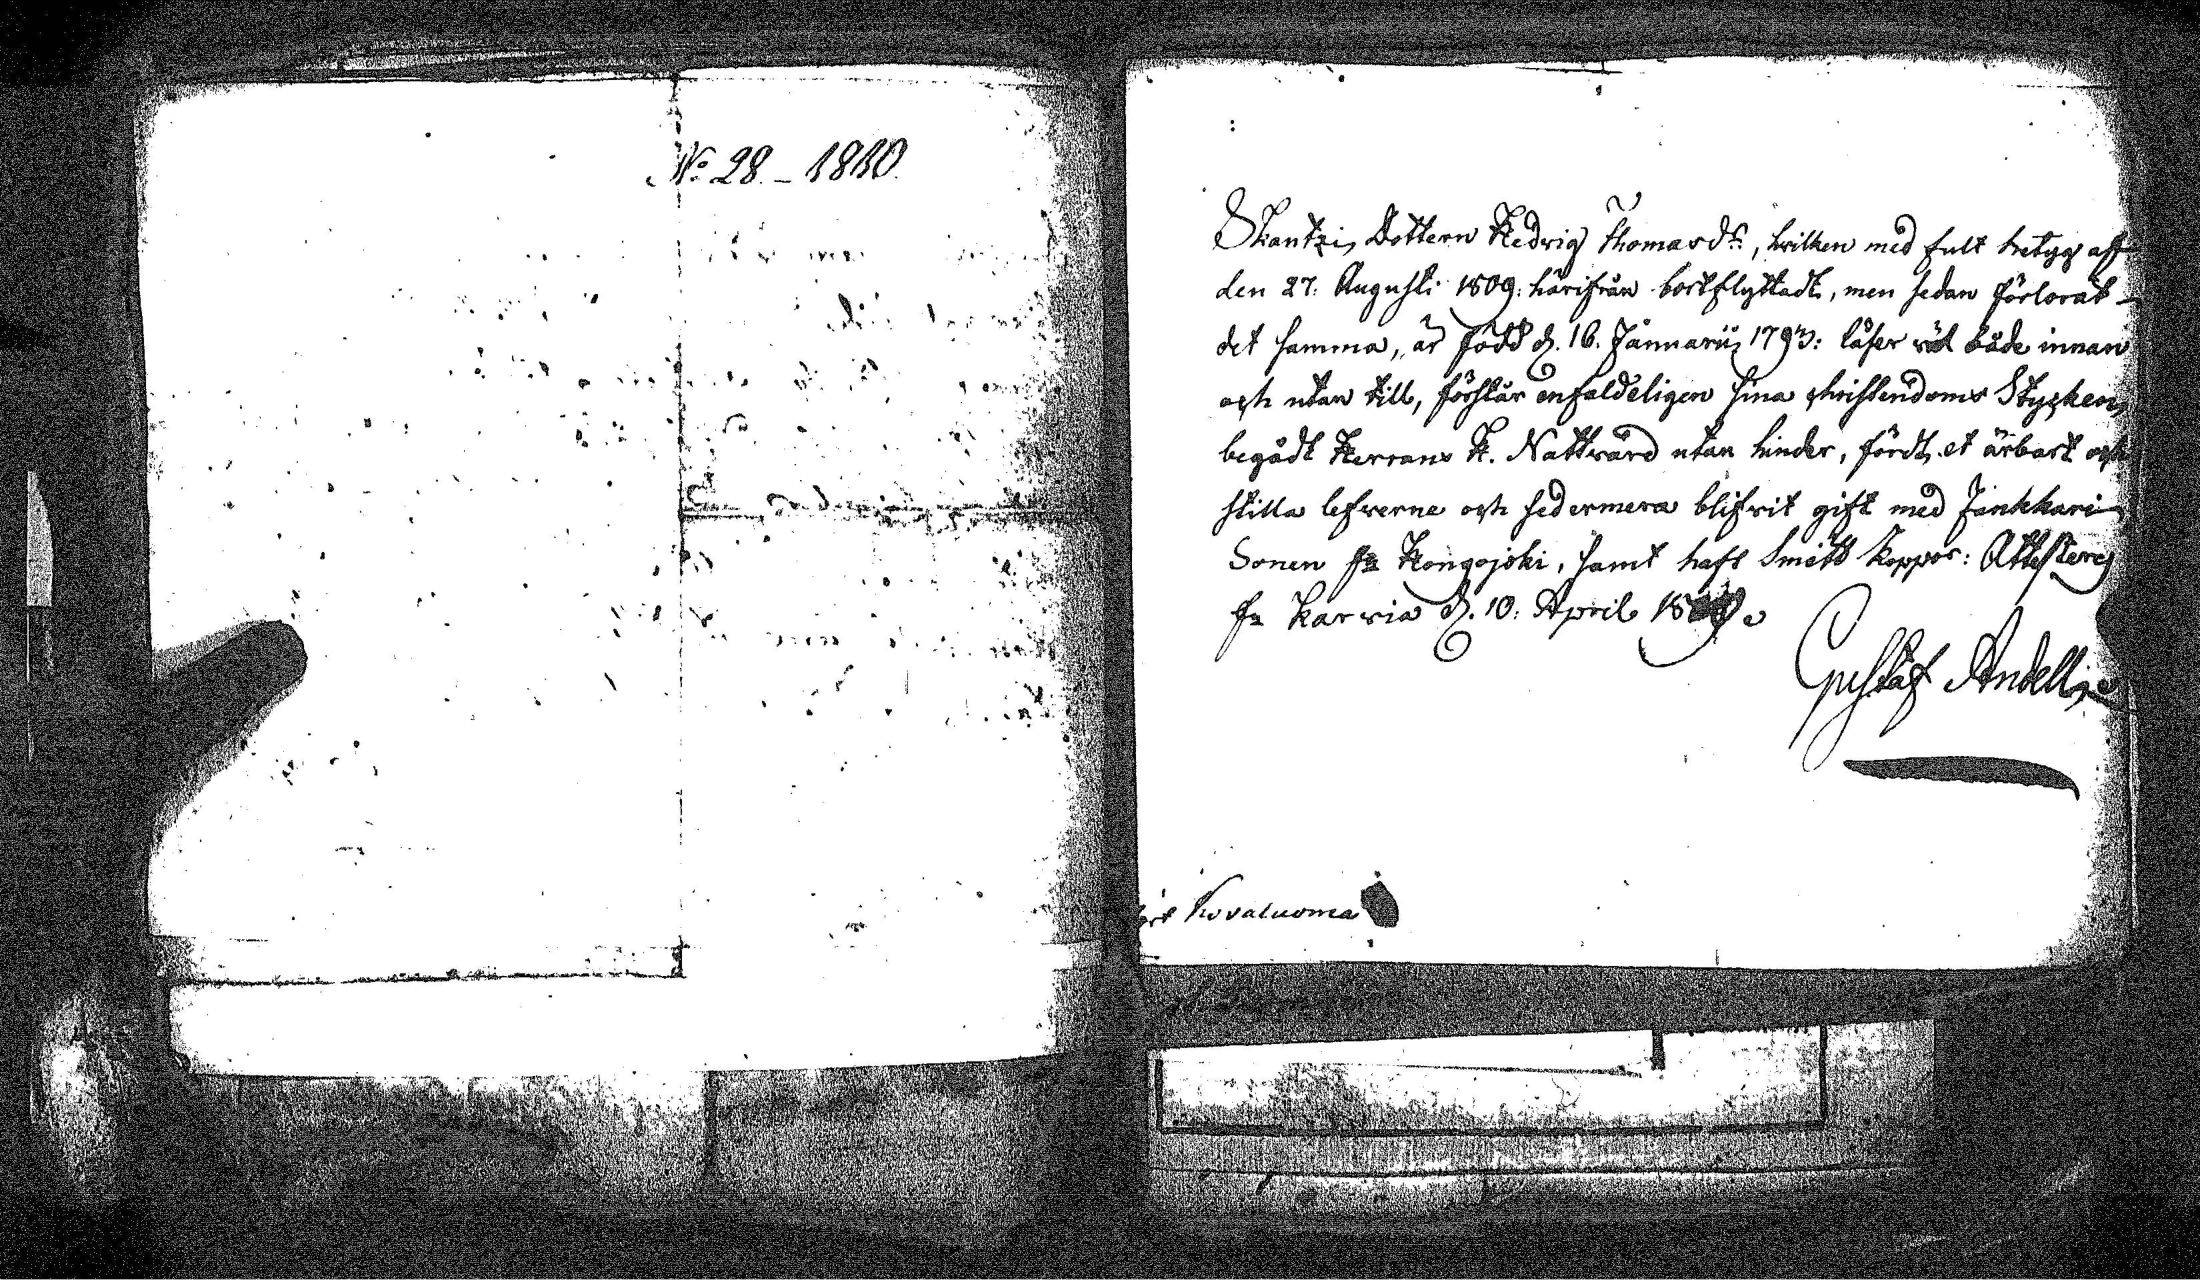 No 28. – 1810.
Skantzi Dottern Hedvig Thomasdr, hvilken med fult betyg aff
den 27. Augusti 1809. härifrån bortflyttadt, men sedan förlorat
det samma, är född d. 16. Januarii 1793: läser väl både innan
och utan till, förstår enfaldeligen sina christendoms Stycken,
begådt Herrans H. Nattvard utan hinder, fördt et ärbart och
stilla lefverne och sedermera blifvit gift med Jänkkäri
Sonen fr Kongojoki, samt haft Smitt Koppor: Attesterer
fr Karvia d. 10. April
Gustaf
Kovaluoma